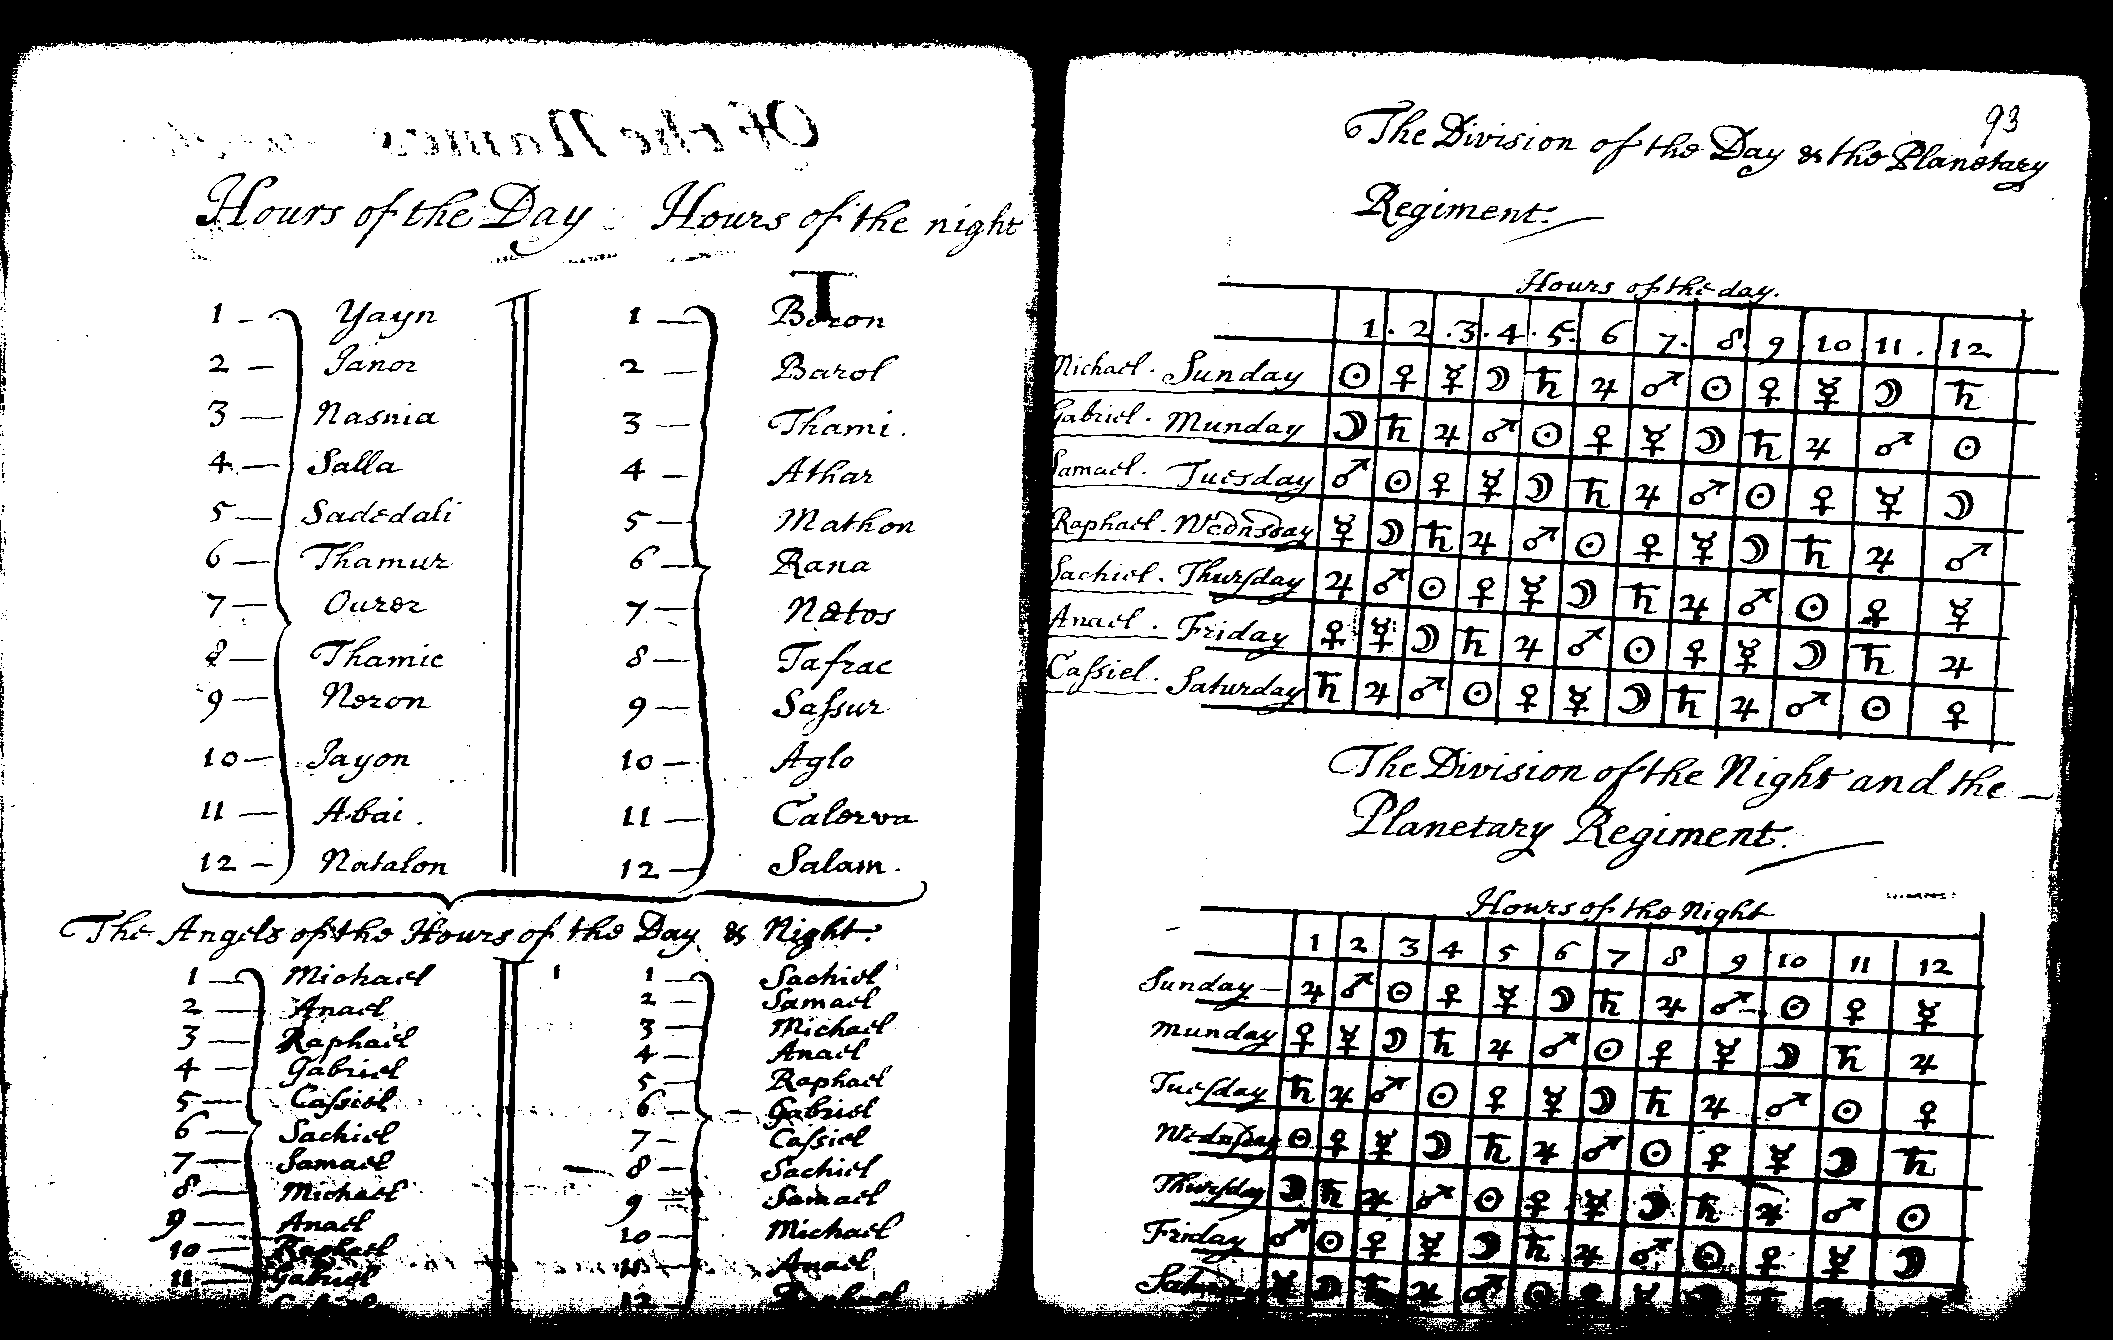 Hours of the Day Hours of the night
1 — Yayn 1 — Beron
2 — Janor 2 — Barol
3 — Nasnia 3 — Thami.
4 — Salla 4 — Athar
5 — Sadedali 5 — Mathon
6 — Thamur 6 — Rana
7 — Ourer 7 — Netos
8 — Thamic 8 — Tafrac
9 — Neron 9 — Saſsur
10 — Jayon 10 — Aglo
11 — Abai. 11 — Calerva
12 — Natalon 12 — Salam.
The Angels of the Hours of the Day & Night.
1 — Michael 1 — Sachiel
2 — Anael 2 — Samael
3 — Raphael 3 — Michael
4 — Gabriel 4 — Anael
5 — Caſsiel 5 — Raphael
6 — Sachiel 6 — Gabriel
7 — Samael 7 — Caſsiel
8 — Michael 8 — Sachiel
9 — Anael 9 — Samael
10 — Raphael 10 — Michael
11 — Gabriel 11 — Anael
12 — Raphael
93
The Division of the Day & the Planetary
Regiment.
Hours of the day.
1. 2 .3. 4. 5. 6 7. 8. 9 10 11. 12
Michael. Sunday ☉ ♀ ☿ ☽ ♄ ♃ ♂ ☉ ♀ ☿ ☽ ♄
Gabriel. Munday ☽ ♄ ♃ ♂ ☉ ♀ ☿ ☽ ♄ ♃ ♂ ☉
Samael. Tuesday ♂ ☉ ♀ ☿ ☽ ♄ ♃ ♂ ☉ ♀ ☿ ☽
Raphael. Wednsday ☿ ☽ ♄ ♃ ♂ ☉ ♀ ☿ ☽ ♄ ♃ ♂
Sachiel. Thurſday ♃ ♂ ☉ ♀ ☿ ☽ ♄ ♃ ♂ ☉ ♀ ☿
Anael. Friday ♀ ☿ ☽ ♄ ♃ ♂ ☉ ♀ ☿ ☽ ♄ ♃
Caſsiel. Saturday ♄ ♃ ♂ ☉ ♀ ☿ ☽ ♄ ♃ ♂ ☉ ♀
The Division of the Night and the —
Planetary Regiment.
Hours of the Night
1 2 3 4 5 6 7 8 9 10 11 12
Sunday — ♃ ♂ ☉ ♀ ☿ ☽ ♄ ♃ ♂ ☉ ♀ ☿
Munday ♀ ☿ ☽ ♄ ♃ ♂ ☉ ♀ ☿ ☽ ♄ ♃
Tueſday ♄ ♃ ♂ ☉ ♀ ☿ ☽ ♄ ♃ ♂ ☉ ♀
Wednſday ☉ ♀ ☿ ☽ ♄ ♃ ♂ ☉ ♀ ☿ ☽ ♄
Thurſday ☽ ♄ ♃ ♂ ☉ ♀ ☿ ☽ ♄ ♃ ♂ ☉
Friday ♂ ☉ ♀ ☿ ☽ ♄ ♃ ♂ ☉ ♀ ☿ ☽
☿ ☽ ♄ ♃ ♂ ☉ ♀ ☿ ☽ ♄ ♃